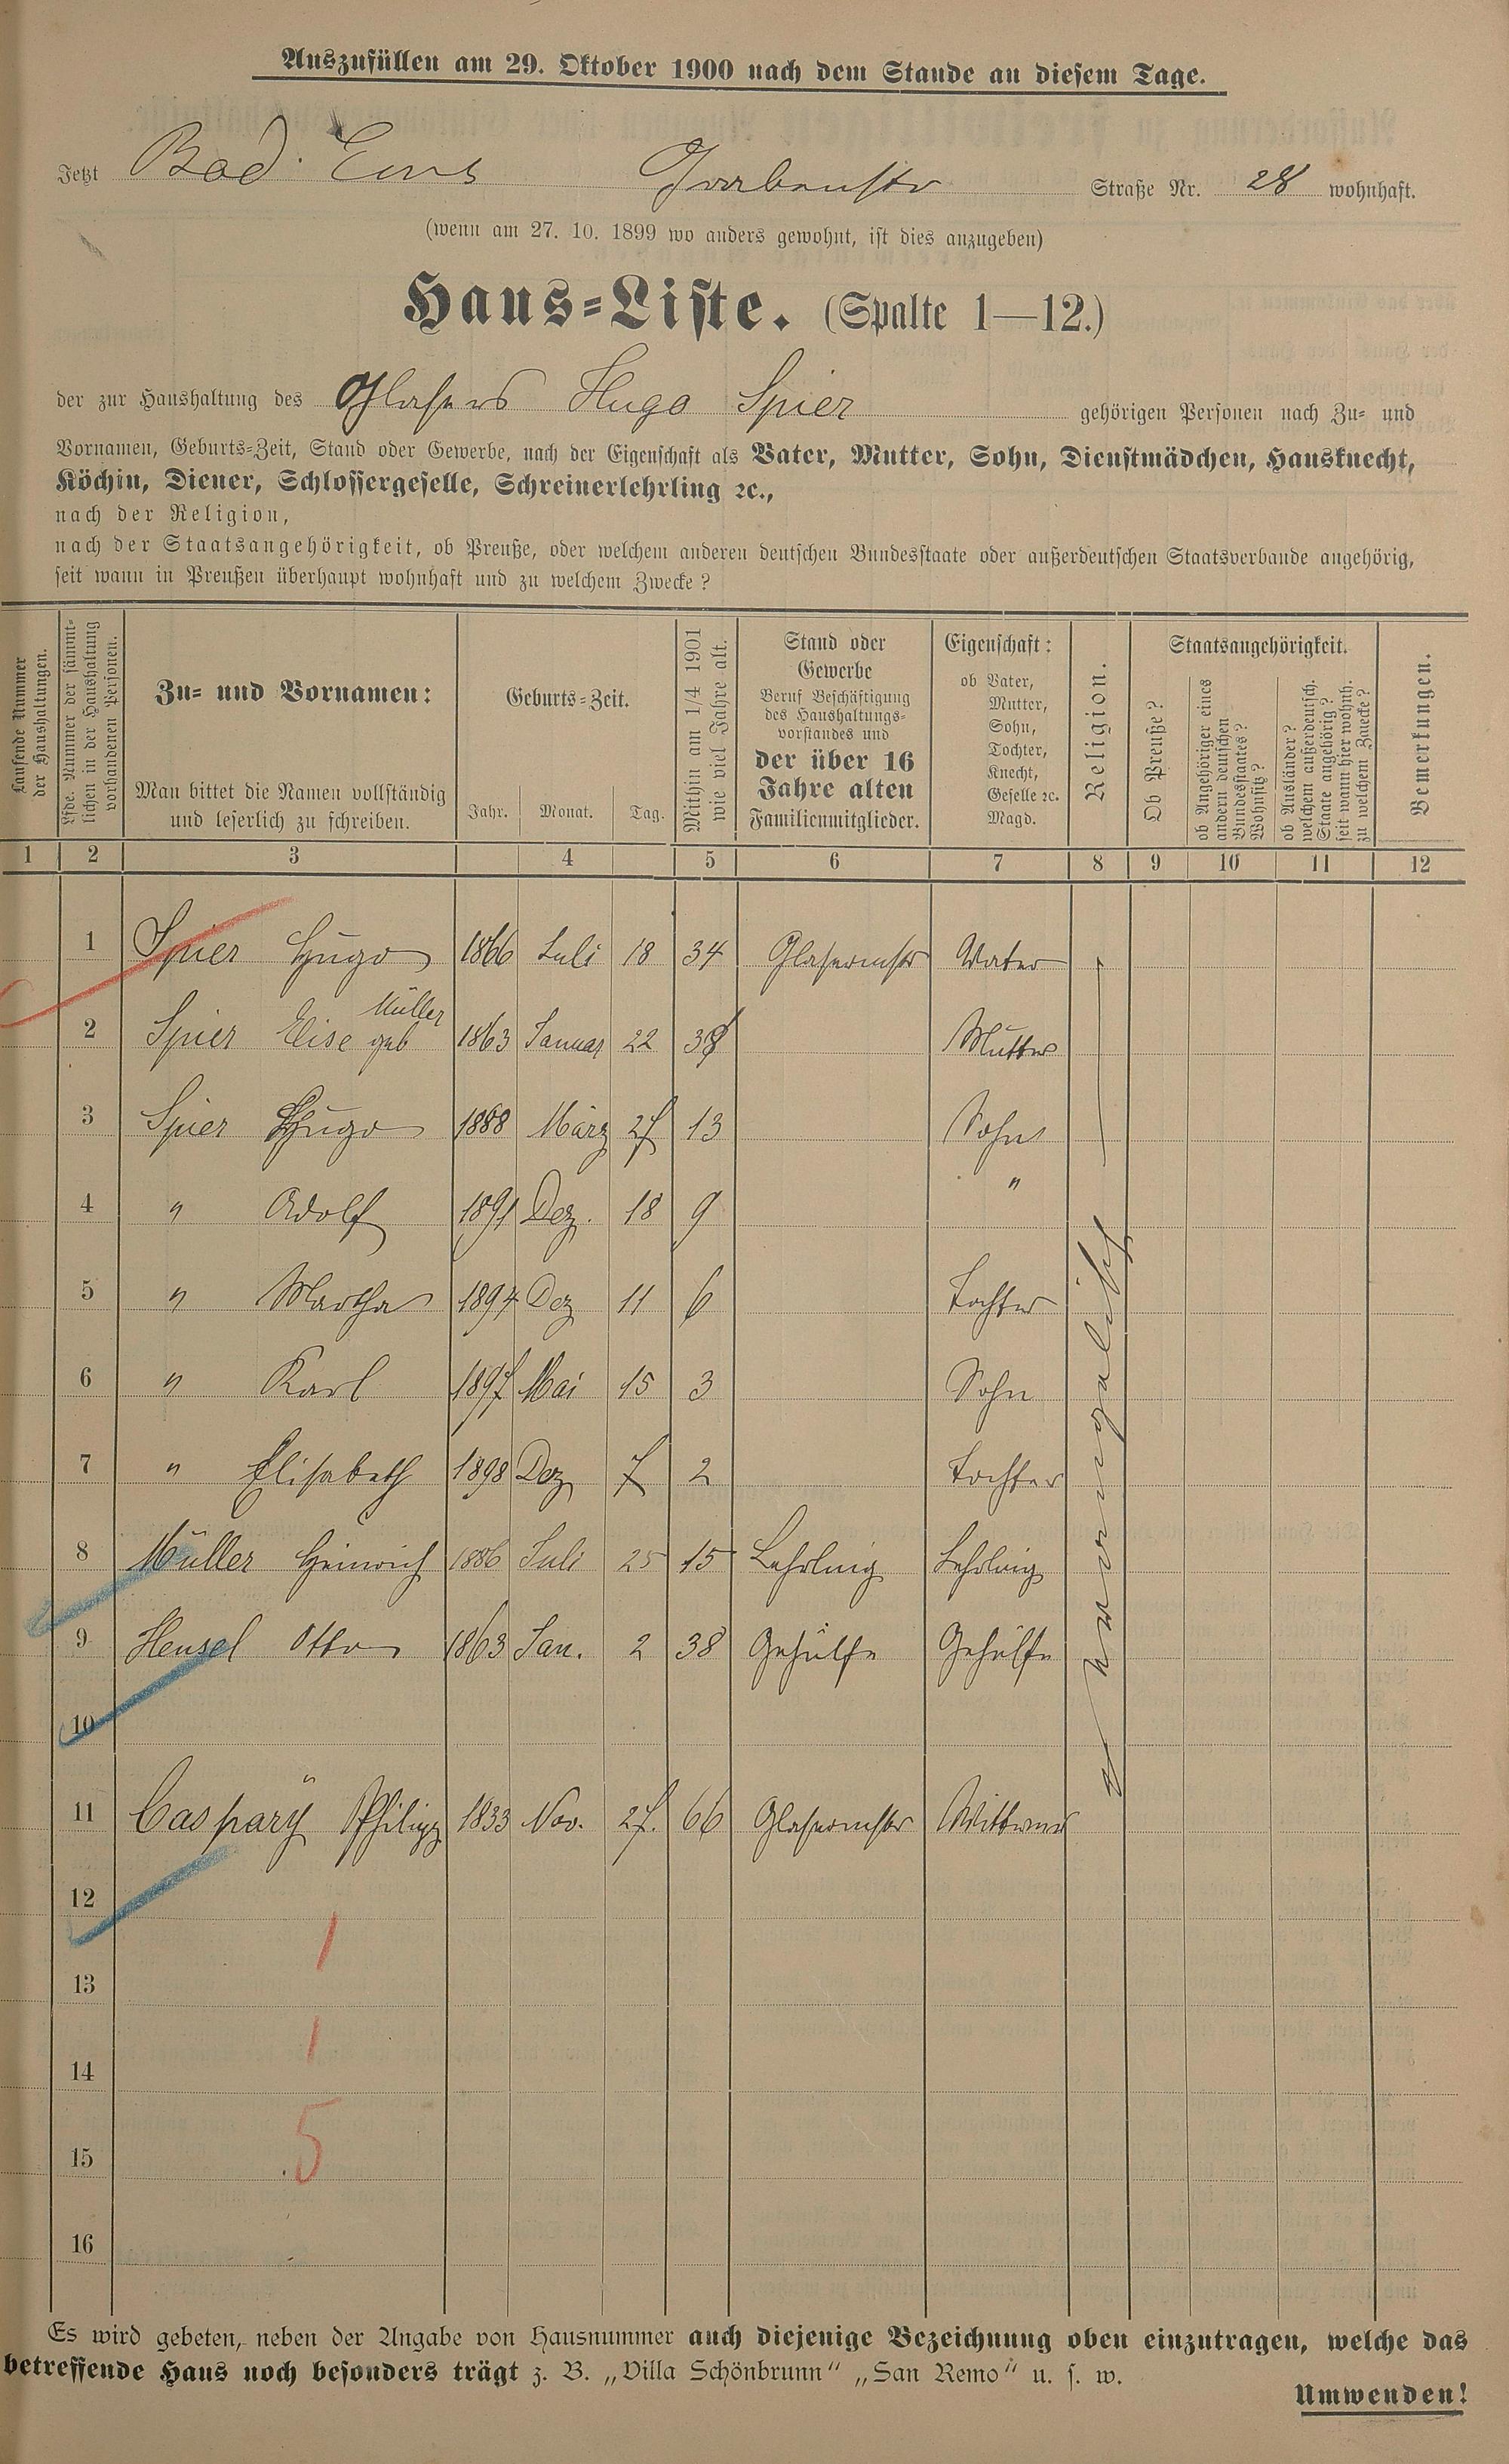 Auszufüllen am 29. Oktober 1900 nach dem Stande an diesem Tage.
Jetzt Bad Ems Grabenstr Straße Nr. 28 wohnhaft.
(wenn am 27. 10. 1899 wo anders gewohnt, ist dies anzugeben)
Haus-Liste. (Spalte 1—12.)
der zur Haushaltung des Glasers Hugo Spier gehörigen Personen nach Zu- und
Vornamen, Geburts-Zeit, Stand oder Gewerbe, nach der Eigenschaft als Vater, Mutter, Sohn, Dienstmädchen, Hausknecht,
Köchin, Diener, Schlossergeselle, Schreinerlehrling ꝛc.,
nach der Religion,
nach der Staatsangehörigkeit, ob Preuße, oder welchem anderen deutschen Bundesstaate oder außerdeutschen Staatsverbande angehörig,
seit wann in Preußen überhaupt wohnhaft und zu welchem Zwecke?
Laufende Nummer
der Haushaltungen.
Lfde. Nummer der sämmt-
lichen in der Haushaltung
vorhandenen Personen.
Zu- und Vornamen:
Man bittet die Namen vollständig
und leserlich zu schreiben.
Geburts-Zeit.
Jahr. Monat. Tag.
Mithin am 1/4 1901
wie viel Jahre alt.
Stand oder
Gewerbe
Beruf Beschäftigung
des Haushaltungs-
vorstandes und
der über 16
Jahre alten
Familienmitglieder.
Eigenschaft:
ob Vater,
Mutter,
Sohn,
Tochter,
Knecht,
Geselle ꝛc.
Magd.
Religion.
Staatsangehörigkeit.
Ob Preuße?
ob Angehöriger eines
andern deutschen
Bundesstaates?
Wohnsitz?
ob Ausländer?
welchem außerdeutsch.
Staate angehörig?
seit wann hier wohnh.
zu welchem Zwecke?
Bemerkungen.
1 2 3 4 5 6 7 8 9 10 11 12
1 Spier Hugo 1866 Juli 18 34 Glasermstr Vater
Müller
2 Spier Elise geb 1863 Januar 22 38 Mutter
3 Spier Hugo 1888 März 27 13 Sohn
4 " Adolf 1891 Dez. 18 9 "
5 " Martha 1894 Dez 11 6 Tochter
6 " Karl 1897 Mai 15 3 Sohn
7 " Elisabeth 1898 Dez 7 2 Tochter
8 Müller Heinrich 1886 Juli 25 15 Lehrling Lehrling
9 Hensel Otto 1863 Jan. 2 38 Gehülfe Gehülfe
10
11 Caspary Philipp 1833 Nov. 27. 66 Glasermstr Wittwer
evangelisch
12
1
13
1
14
5
15
16
Es wird gebeten, neben der Angabe von Hausnummer auch diejenige Bezeichnung oben einzutragen, welche das
betreffende Haus noch besonders trägt z. B. „Villa Schönbrunn" „San Remo" u. s. w.
Umwenden!